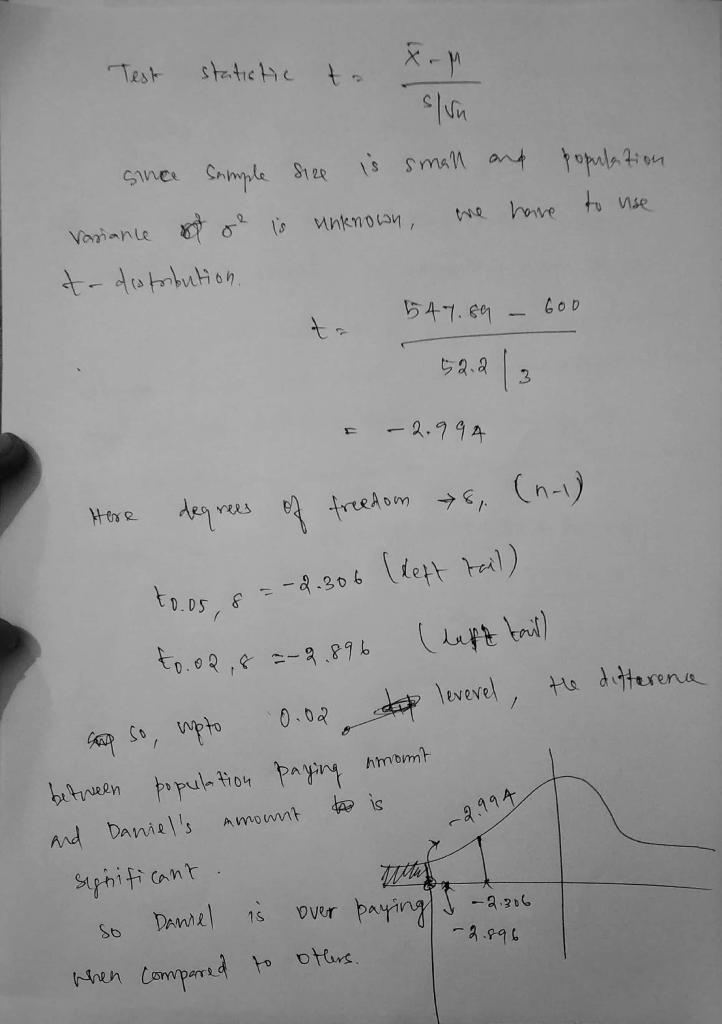 Test statistic t = x̄ - μ / s/√n
since sample size is small and population
variance of σ² is unknown, we have to use
t - distribution.
t = 547.89 - 600 / 52.2 / 3
= -2.994
Here degrees of freedom → 8, (n-1)
t0.05, 8 = -2.306 (left tail)
t0.02, 8 = -2.896 (left tail)
so, upto 0.02 levevel, the difference
between population paying amount
and Daniel's amount is
significant.
so Daniel is over paying
when compared to others.
-2.994
-2.306
-2.896